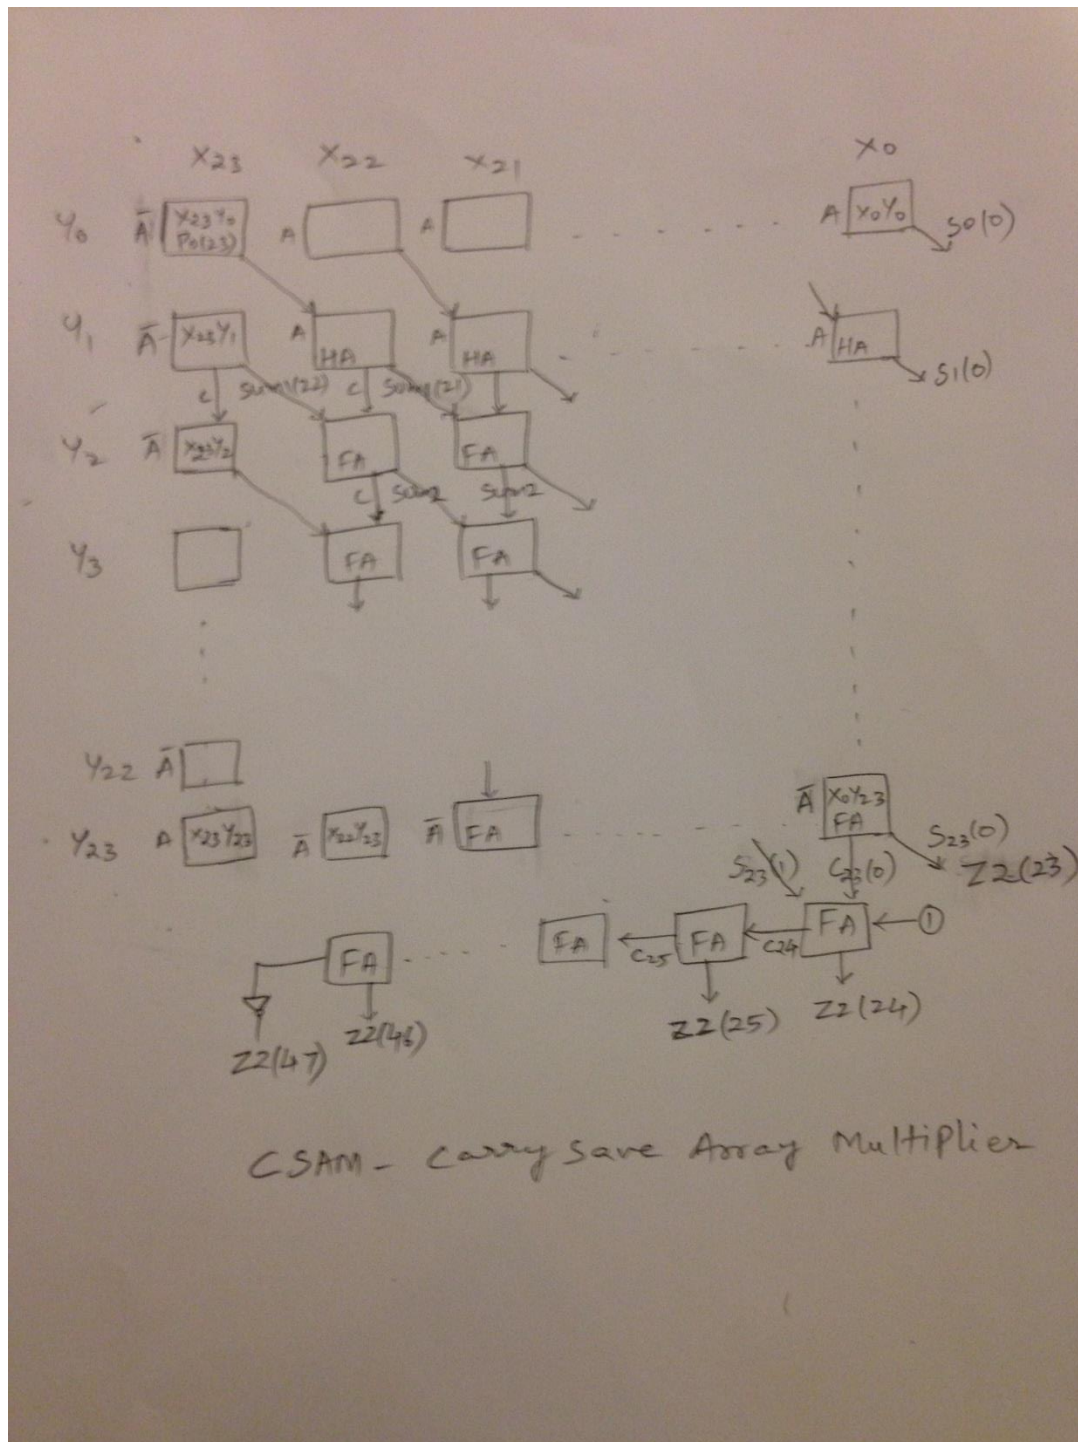 X23 X22 X21 X0
Y0 Ā X23Y0 A A A X0Y0 S0(0)
P0(23)
Y1 Ā X23Y1 A HA A HA A HA S1(0)
C Sum1(22) C Sum1(21)
Y2 Ā X23Y2 FA FA
C Sum2 Sum2
Y3 FA FA
Y22 Ā
Ā X0Y23
Y23 A X23Y23 Ā X22Y23 Ā FA FA S23(0)
S23(1) C23(0) Z2(23)
FA FA C25 FA C24 FA 1
Z2(47) Z2(46) Z2(25) Z2(24)
CSAM - Carry Save Array Multiplier